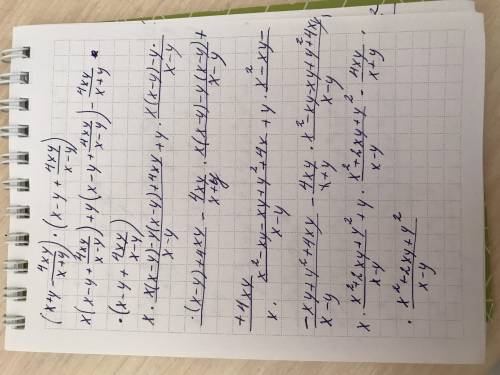 (x+y - 4xy/x+y) · (x-y + 4xy/x-y)
x(x-y + 4xy/x-y) + y(x-y + 4xy/x-y) - 4xy/x+y ·
· (x-y + 4xy/x-y)
x · x(x-y)-y(x-y)+4xy/x-y + y · x(x-y)-y·
·(x-y)+4xy/x-y - 4xy/x+y · x(x-y)-y(x-y)+
+4xy/x-y
x · x²-xy-xy+y²+4x/x-y + y · x²-xy-
-xy+y²+4xy/x-y - 4xy/x+y · x²-xy-xy+y²+4xy/x-y
x · x²+2xy+y²/x-y + y · x²+2xy+y²/x-y - 4xy/x+y ·
· x²+2xy+y²/x-y